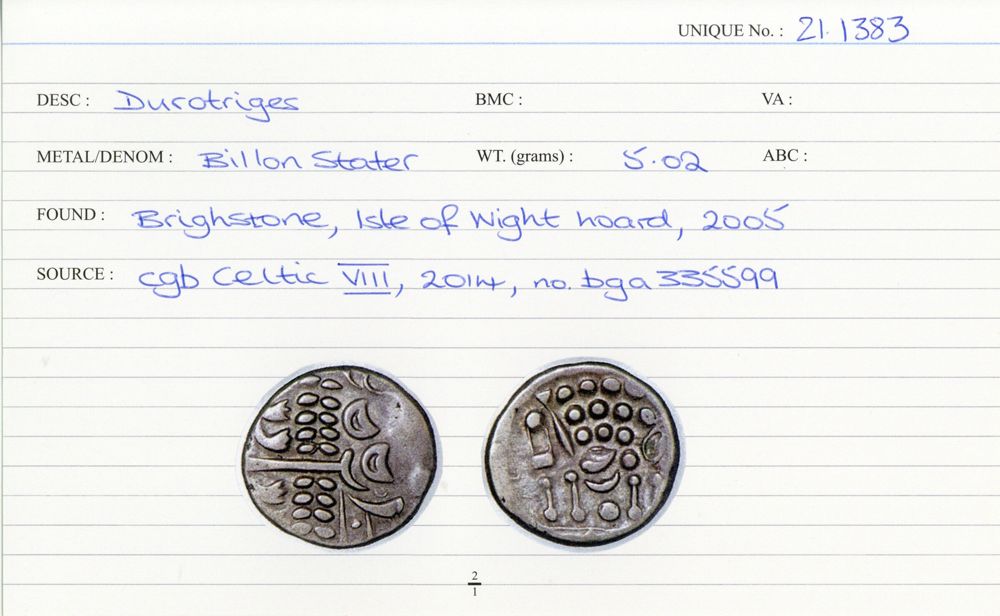 UNIQUE No. : 21.1383
DESC : Durotriges BMC : VA :
METAL/DENOM : Billon Stater WT. (grams) : 5.02 ABC :
FOUND : Brighstone, Isle of Wight hoard, 2005
SOURCE : cgb Celtic VIII, 2014, no. bga 335599
2
1